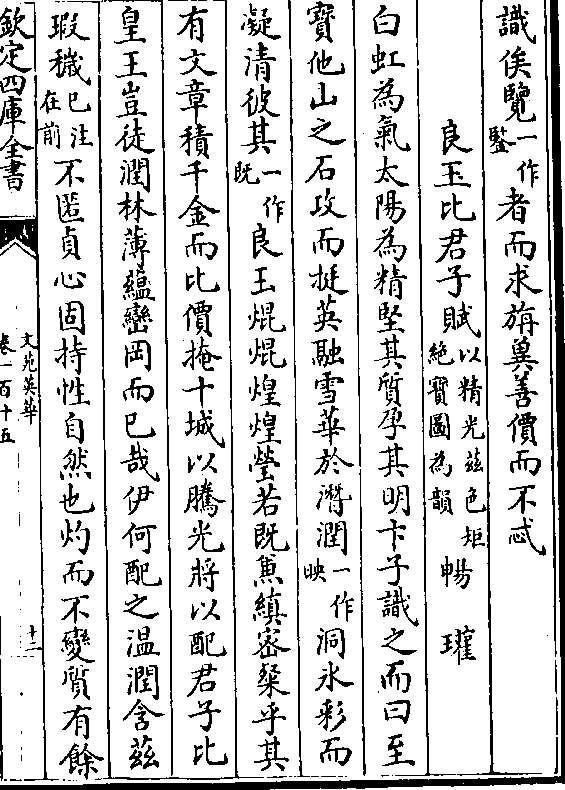 識俟覽一作鍳者而求旃兾善價而不忒
良玉比君子賦以精光兹色矩絶寳圖為韻 暢 璀
白虹為氣太陽為精堅其質孕其明卞子識之而曰至
寳他山之石攻而挺英融雪華於濳潤一作映洞氷彩而
凝清彼其一作既良玉焜焜煌煌瑩若既蒸縝宻粲乎其
有文章積千金而比價掩十城以騰光將以配君子比
皇王豈徒潤林薄藴巒岡而已哉伊何配之温潤含兹
瑕穢已注在前不匿貞心固持性自然也灼而不變質有餘
欽定四庫全書
文苑英華
卷一百十五
十二